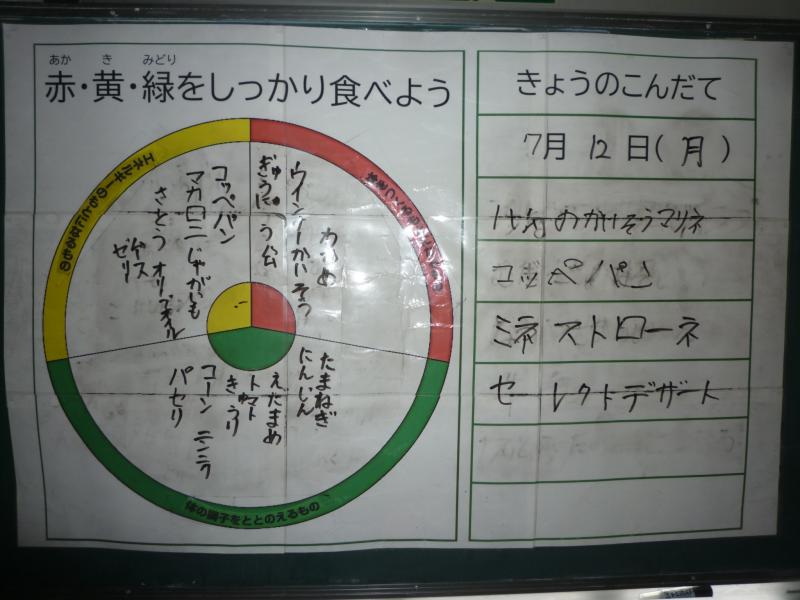 あか き みどり
赤・黄・緑をしっかり食べよう
エネルギーのもとになるもの
コッペパン
マカロニ じゃがいも
さとう オリーブオイル
ゼリー
ぎゅうにゅう
ウインナー かいそう
わかめ
たまねぎ
にんじん
えだまめ
トマト
きゅうり
コーン ニンニク
パセリ
体の調子をととのえるもの
きょうのこんだて
7月 12 日(月)
のかいそうマリネ
コッペパン
ミネストローネ
セレクトデザート